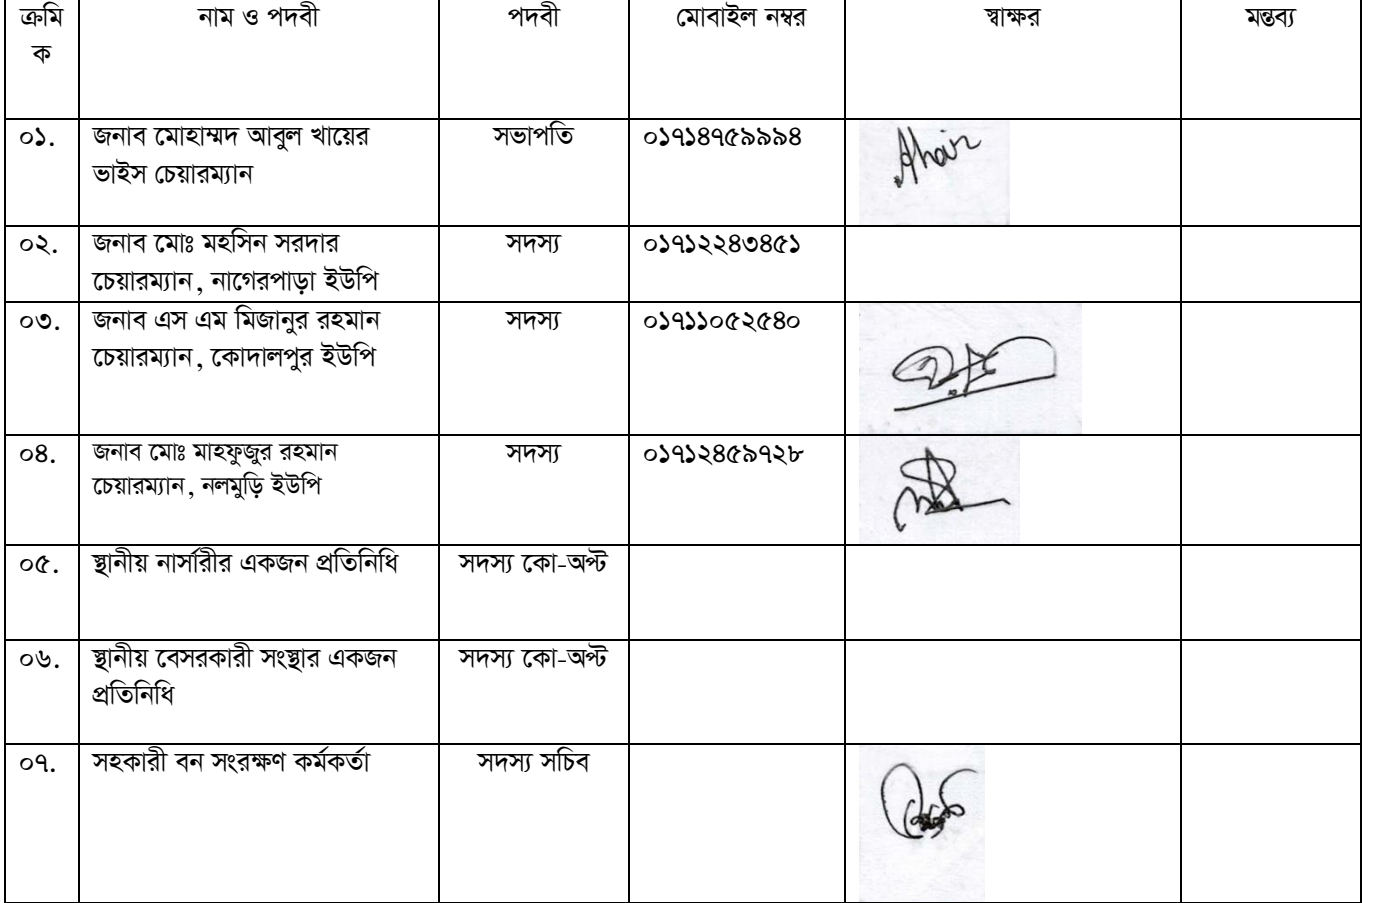 ক্রমি
ক
নাম ও পদবী
পদবী
মোবাইল নম্বর
স্বাক্ষর
মন্তব্য
০১.
জনাব মোহাম্মদ আবুল খায়ের
ভাইস চেয়ারম্যান
সভাপতি
০১৭১৪৭৫৯৯৯৪
০২.
জনাব মোঃ মহসিন সরদার
চেয়ারম্যান, নাগেরপাড়া ইউপি
সদস্য
০১৭১২২৪৩৪৫১
০৩.
জনাব এস এম মিজানুর রহমান
চেয়ারম্যান, কোদালপুর ইউপি
সদস্য
০১৭১১০৫২৫৪০
০৪.
জনাব মোঃ মাহফুজুর রহমান
চেয়ারম্যান, নলমুড়ি ইউপি
সদস্য
০১৭১২৪৫৯৭২৮
০৫.
স্থানীয় নার্সারীর একজন প্রতিনিধি
সদস্য কো-অপ্ট
০৬.
স্থানীয় বেসরকারী সংস্থার একজন
প্রতিনিধি
সদস্য কো-অপ্ট
০৭.
সহকারী বন সংরক্ষণ কর্মকর্তা
সদস্য সচিব